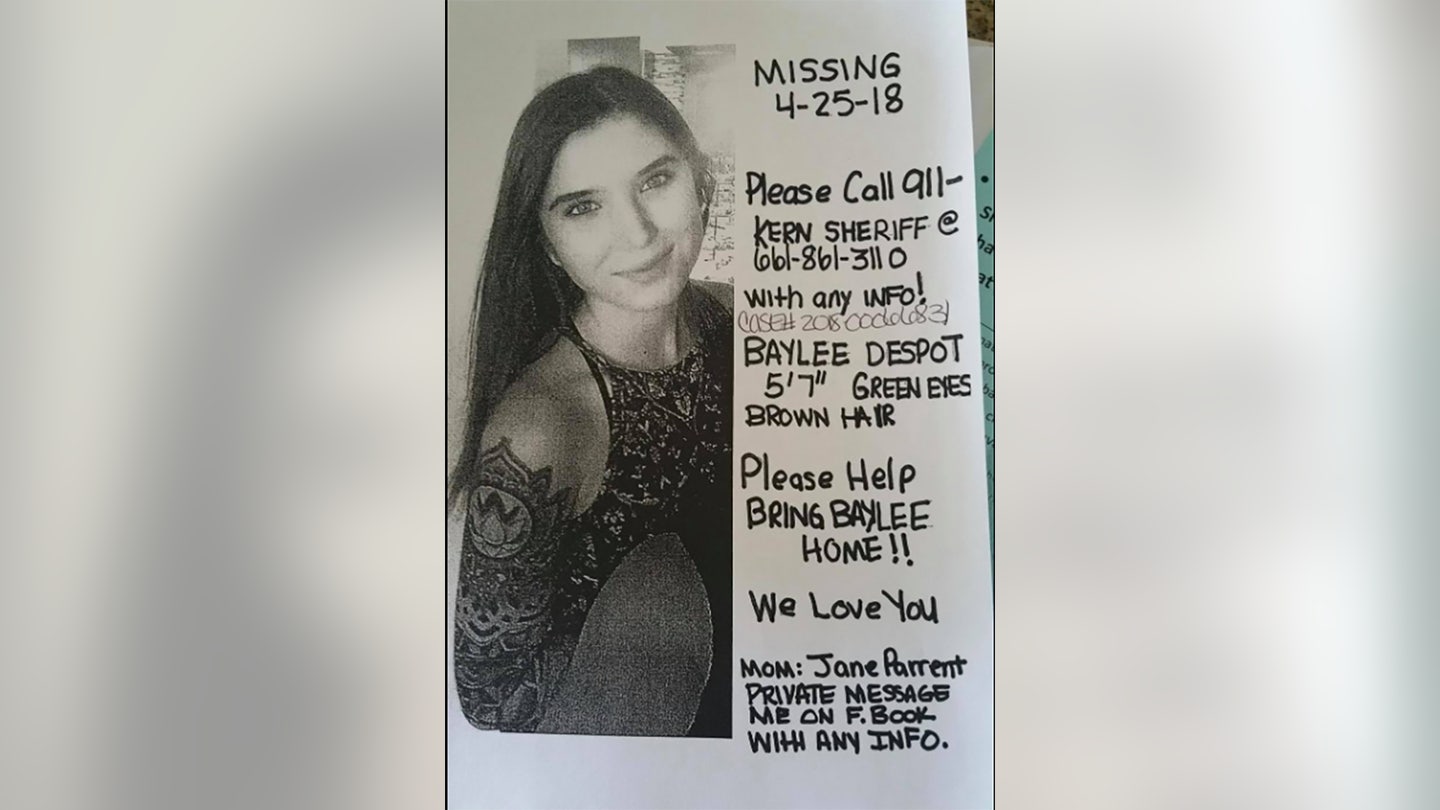 MISSING
4-25-18
Please Call 911-
KERN SHERIFF @
661-861-3110
with any INFO!
CASE#
BAYLEE DESPOT
5'7" GREEN EYES
BROWN HAIR
Please Help
BRING BAYLEE
HOME!!
We Love You
MOM: Jane Parrent
PRIVATE MESSAGE
ME ON F.BOOK
WITH ANY INFO.